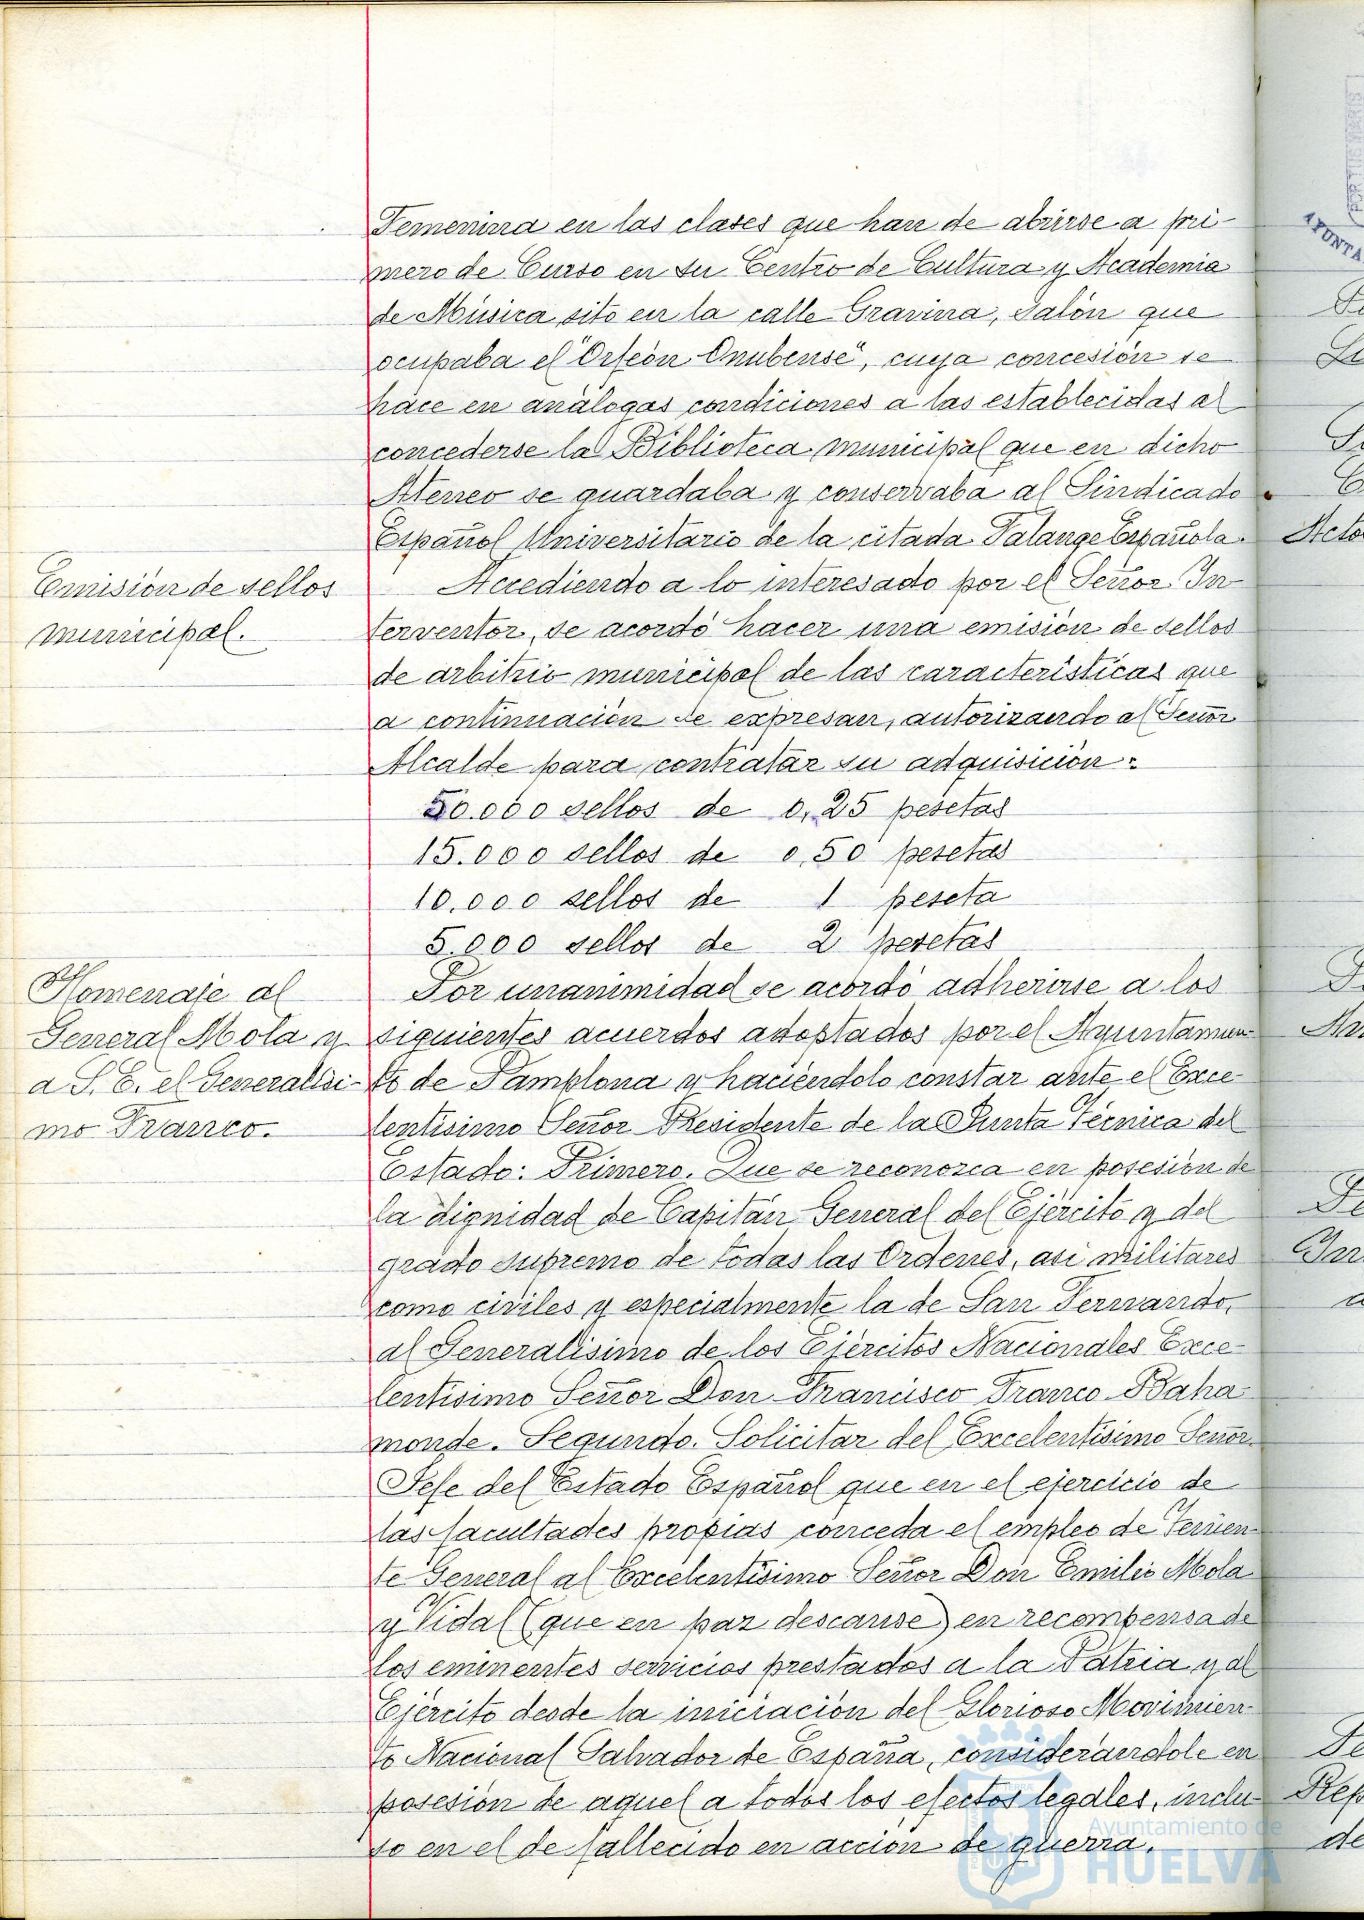 Femenina en las clases que han de abrirse a pri-
mero de Curso en su Centro de Cultura y Academia
de Música sito en la calle Gravina, salón que
ocupaba el "Orfeón Onubense", cuya concesión se
hace en análogas condiciones a las establecidas al
concederse la Biblioteca municipal que en dicho
Ateneo se guardaba y conservaba al Sindicado
Español Universitario de la citada Falange Española.
Emisión de sellos
municipal.
Accediendo a lo interesado por el Señor In-
terventor, se acordó hacer una emisión de sellos
de arbitrio municipal de las características que
a continuación se expresan, autorizando al Señor
Alcalde para contratar su adquisición:
50.000 sellos de 0,25 pesetas
15.000 sellos de 0,50 pesetas
10.000 sellos de 1 peseta
5.000 sellos de 2 pesetas
Homenaje al
General Mola y
a S. E. el Generalísi-
mo Franco.
Por unanimidad se acordó adherirse a los
siguientes acuerdos adoptados por el Ayuntamien-
to de Pamplona y haciéndolo constar ante el Exce-
lentísimo Señor Presidente de la Junta Técnica del
Estado: Primero. Que se reconozca en posesión de
la dignidad de Capitán General del Ejército y del
grado supremo de todas las Ordenes, asi militares
como civiles y especialmente la de San Fernando,
al Generalísimo de los Ejércitos Nacionales Exce-
lentísimo Señor Don Francisco Franco Baha-
monde. Segundo. Solicitar del Excelentísimo Señor
Jefe del Estado Español que en el ejercicio de
las facultades propias conceda el empleo de Tenien-
te General al Excelentísimo Señor Don Emilio Mola
y Vidal (que en paz descanse) en recompensa de
los eminentes servicios prestados a la Patria y al
Ejército desde la iniciación del Glorioso Movimien-
to Nacional Salvador de España, considerándole en
posesión de aquel a todos los efectos legales, inclu-
so en el de fallecido en acción de guerra.
Ayuntamiento de
HUELVA